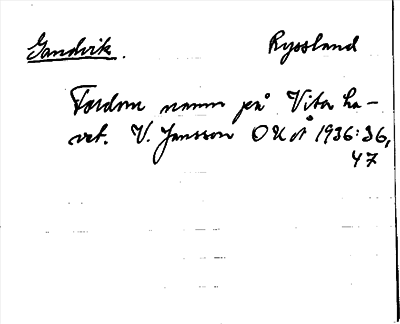 Gandvik. Ryssland
Fordom namn på Vita ha-
vet. V. Jansson OUÅ 1936:36,
47